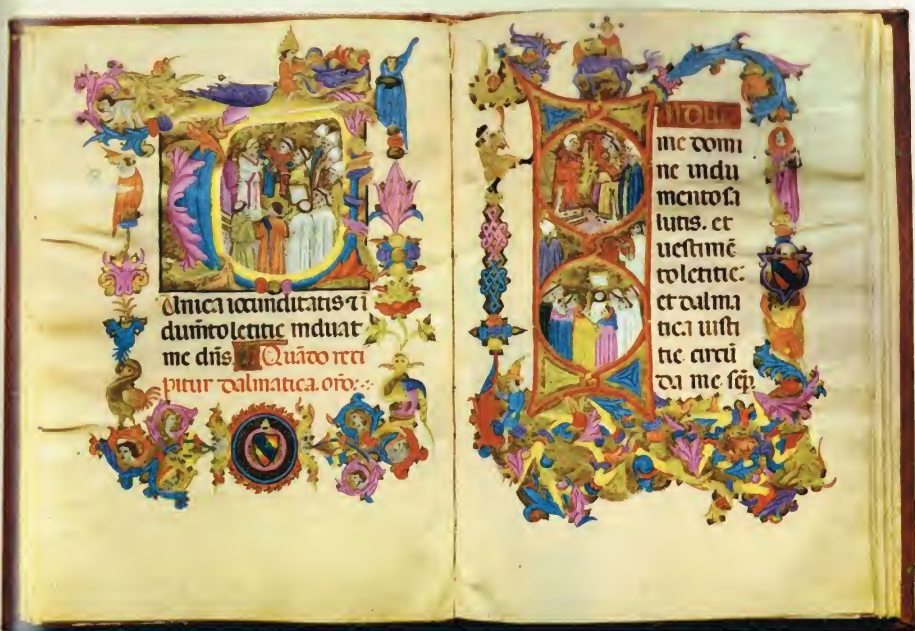 unica iocunditatis ⁊ i
dum̃to letitie induat
me dñs. Quãdo reci
pitur dalmatica. oro. :·
ndue
me domi
ne indu
mento sa
lutis. et
uestimẽ
to letitie:
et dalma
tica iusti
tie circũ
da me sep̃.